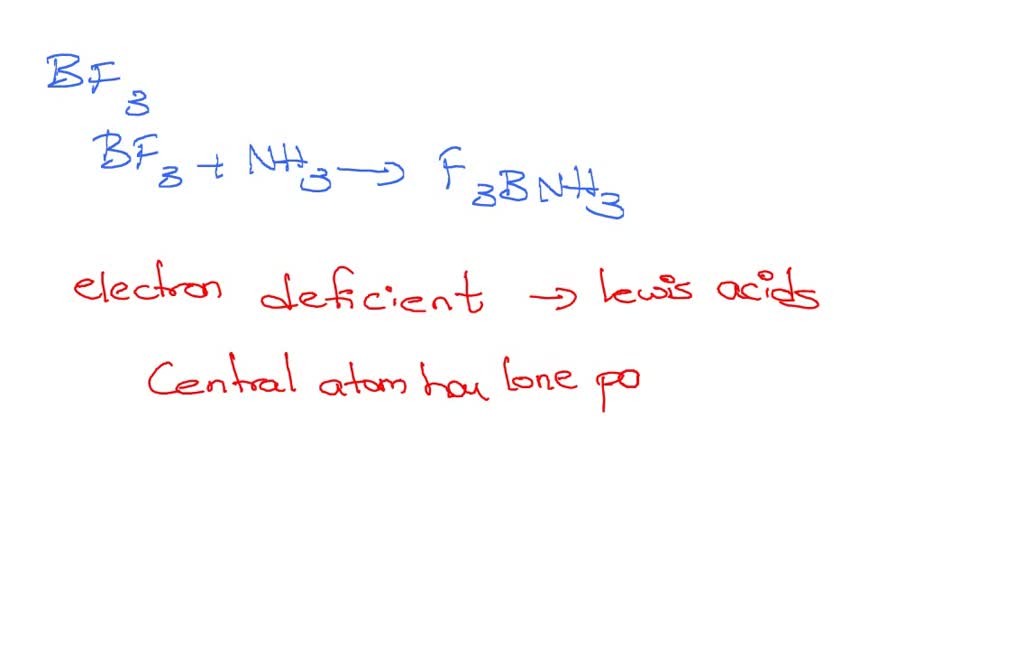 BF3
BF3 + NH3 → F3BNH3
electron deficient → lewis acids
Central atom has lone pa